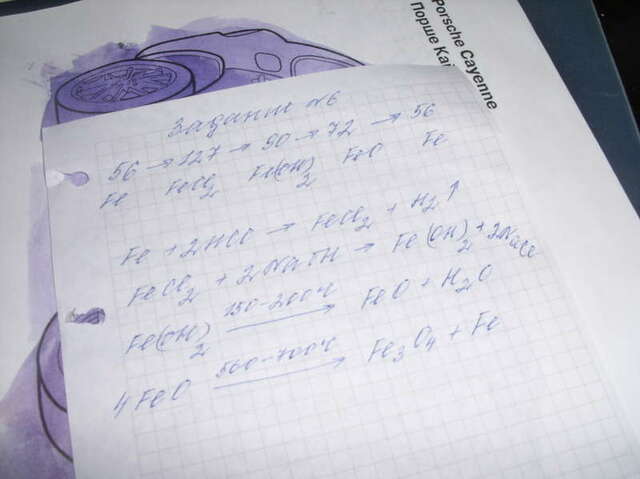 Porsche Cayenne
Порше Кай
Задание №6
56 → 127 → 90 → 72 → 56
Fe FeCl₂ Fe(OH)₂ FeO Fe
Fe + 2HCl → FeCl₂ + H₂↑
FeCl₂ + 2NaOH → Fe(OH)₂ + 2NaCl
Fe(OH)₂ 150-200°C → FeO + H₂O
4FeO 560-700°C → Fe₃O₄ + Fe